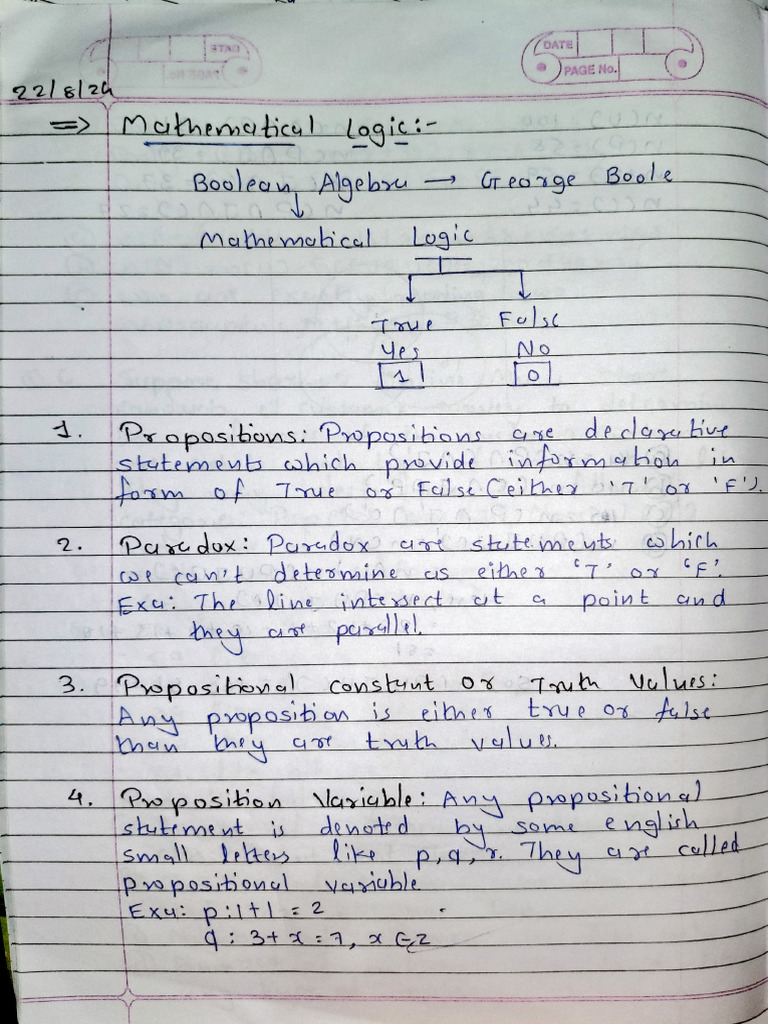 DATE
PAGE No.
22/8/24
=> Mathematical Logic:-
Boolean Algebra → George Boole
↓
Mathematical Logic
True False
Yes No
1 0
1. Propositions: Propositions are declarative
statements which provide information in
form of True or False (either 'T' or 'F').
2. Paradox: Paradox are statements which
we can't determine as either 'T' or 'F'.
Exa: The line intersect at a point and
they are parallel.
3. Propositional constant or Truth Values:
Any proposition is either true or false
than they are truth values.
4. Proposition Variable: Any propositional
statement is denoted by some english
small letters like p, q, r. They are called
propositional variable
Exa: p: 1+1 = 2
q: 3+x = 7, x ∈ z